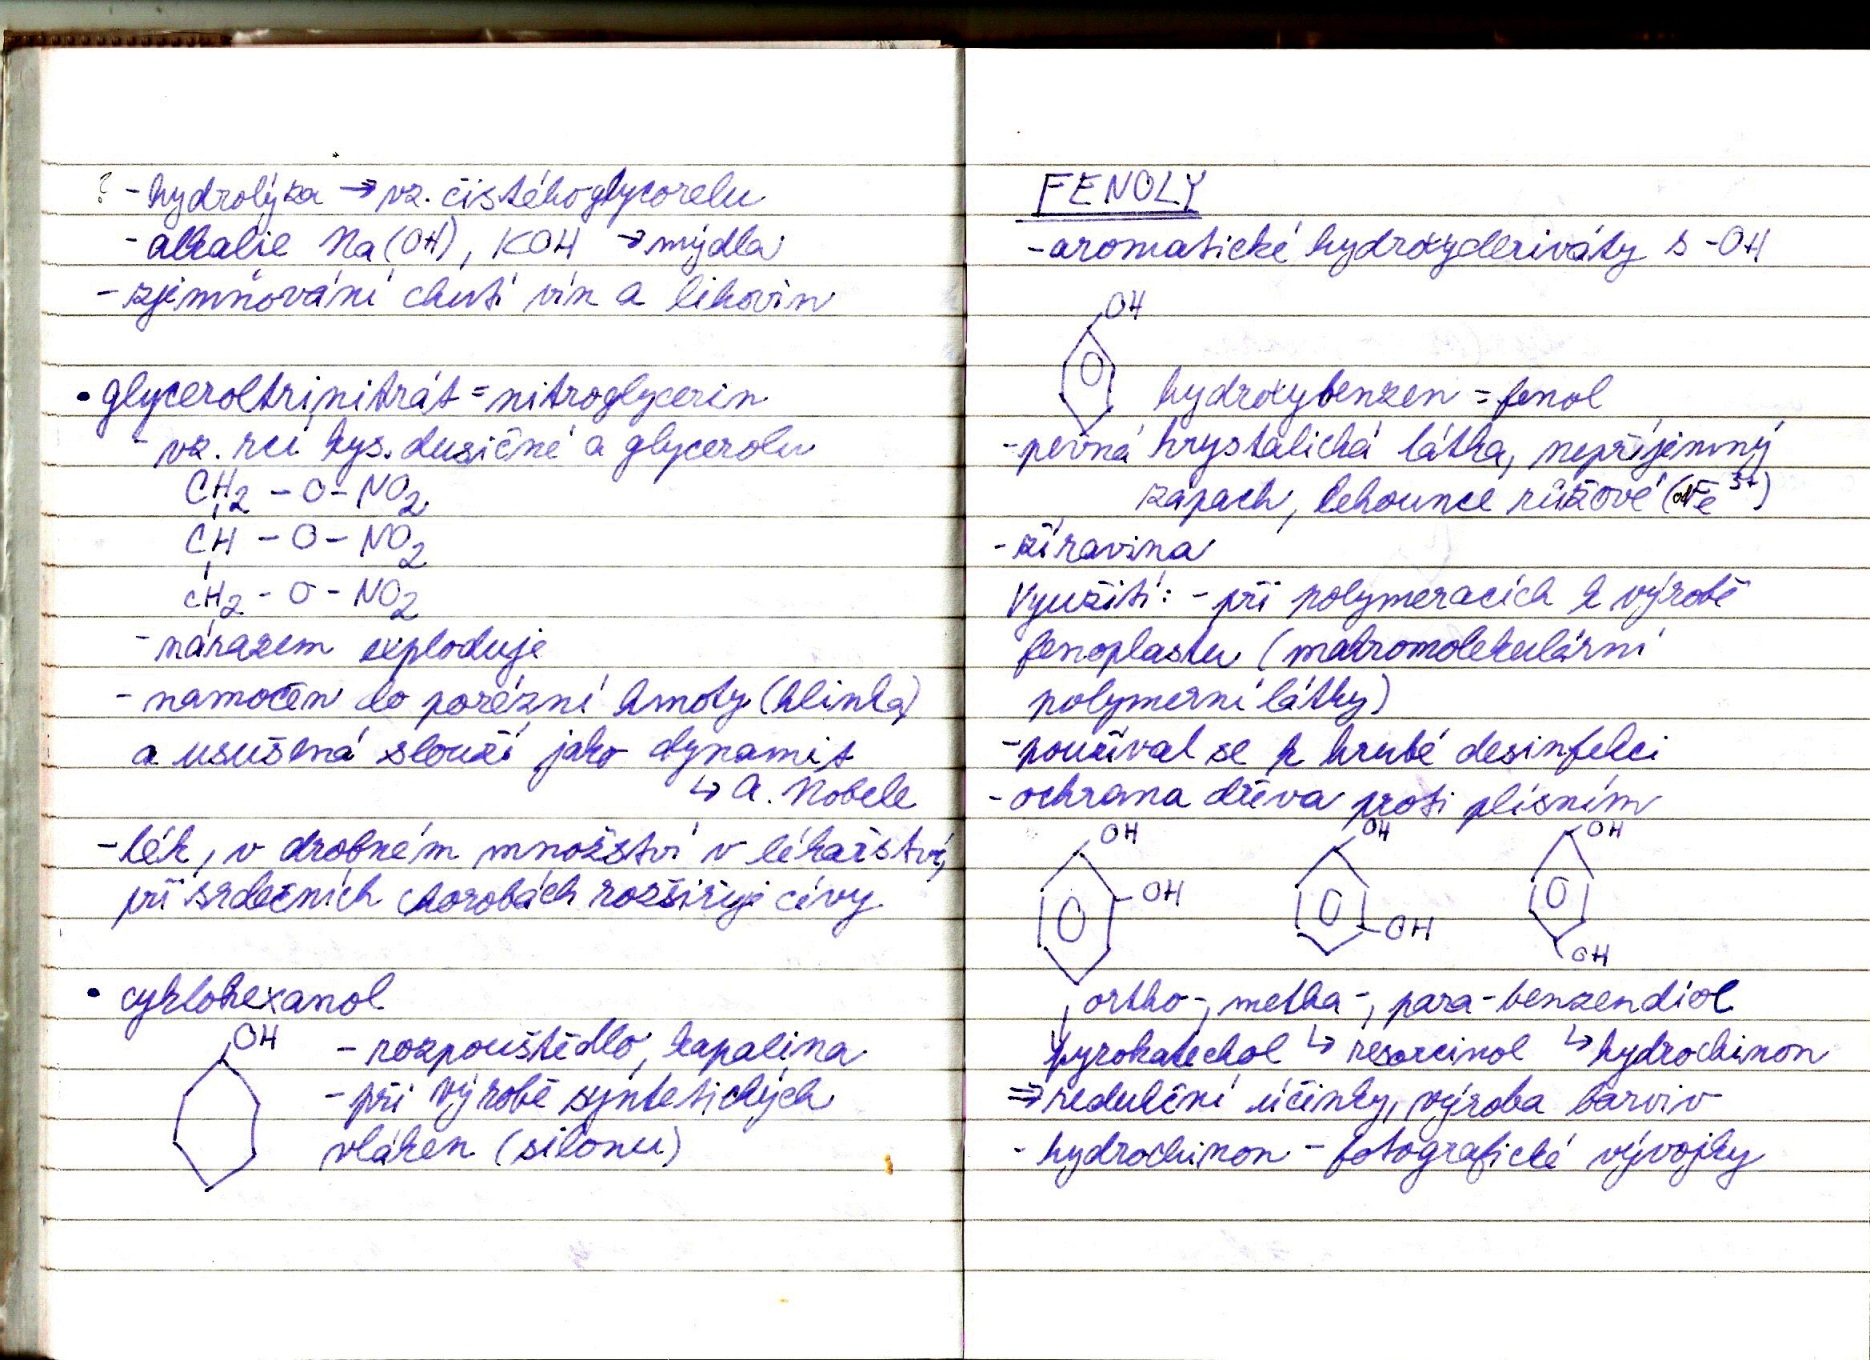 ? - hydrolýza → vz. čistého glycorelu
- alkalie Na(OH), KOH → mýdla
- zjemňování chuti vín a lihovin
• glyceroltrinitrát = nitroglycerin
- vz. rcí kys. dusičné a glycerolu
CH2 - O - NO2
CH - O - NO2
CH2 - O - NO2
- nárazem exploduje
- namočen do porézní hmoty (hlinka)
a usušená slouží jako dynamit
↳ A. Nobele
- lék, v drobném množství v lékařství,
při srdečních chorobách rozšiřuje cévy
• cyklohexanol
OH
- rozpouštědlo, kapalina
- při výrobě syntetických
vláken (silonu)
FENOLY
- aromatické hydroxyderiváty s -OH
OH
hydroxybenzen = fenol
- pevná krystalická látka, nepříjemný
zápach, lehounce růžové (od Fe3+)
- žíravina
Využití: - při polymeracích k výrobě
fenoplastu (makromolekulární
polymerní látky)
- používal se k hrubé desinfekci
- ochrana dřeva proti plísním
OH OH OH
OH OH OH
ortho-, metha-, para-benzendiol
pyrokatechol ↳ resorcinol ↳ hydrochinon
⇒ redukční účinky, výroba barviv
- hydrochinon - fotografické vývojky